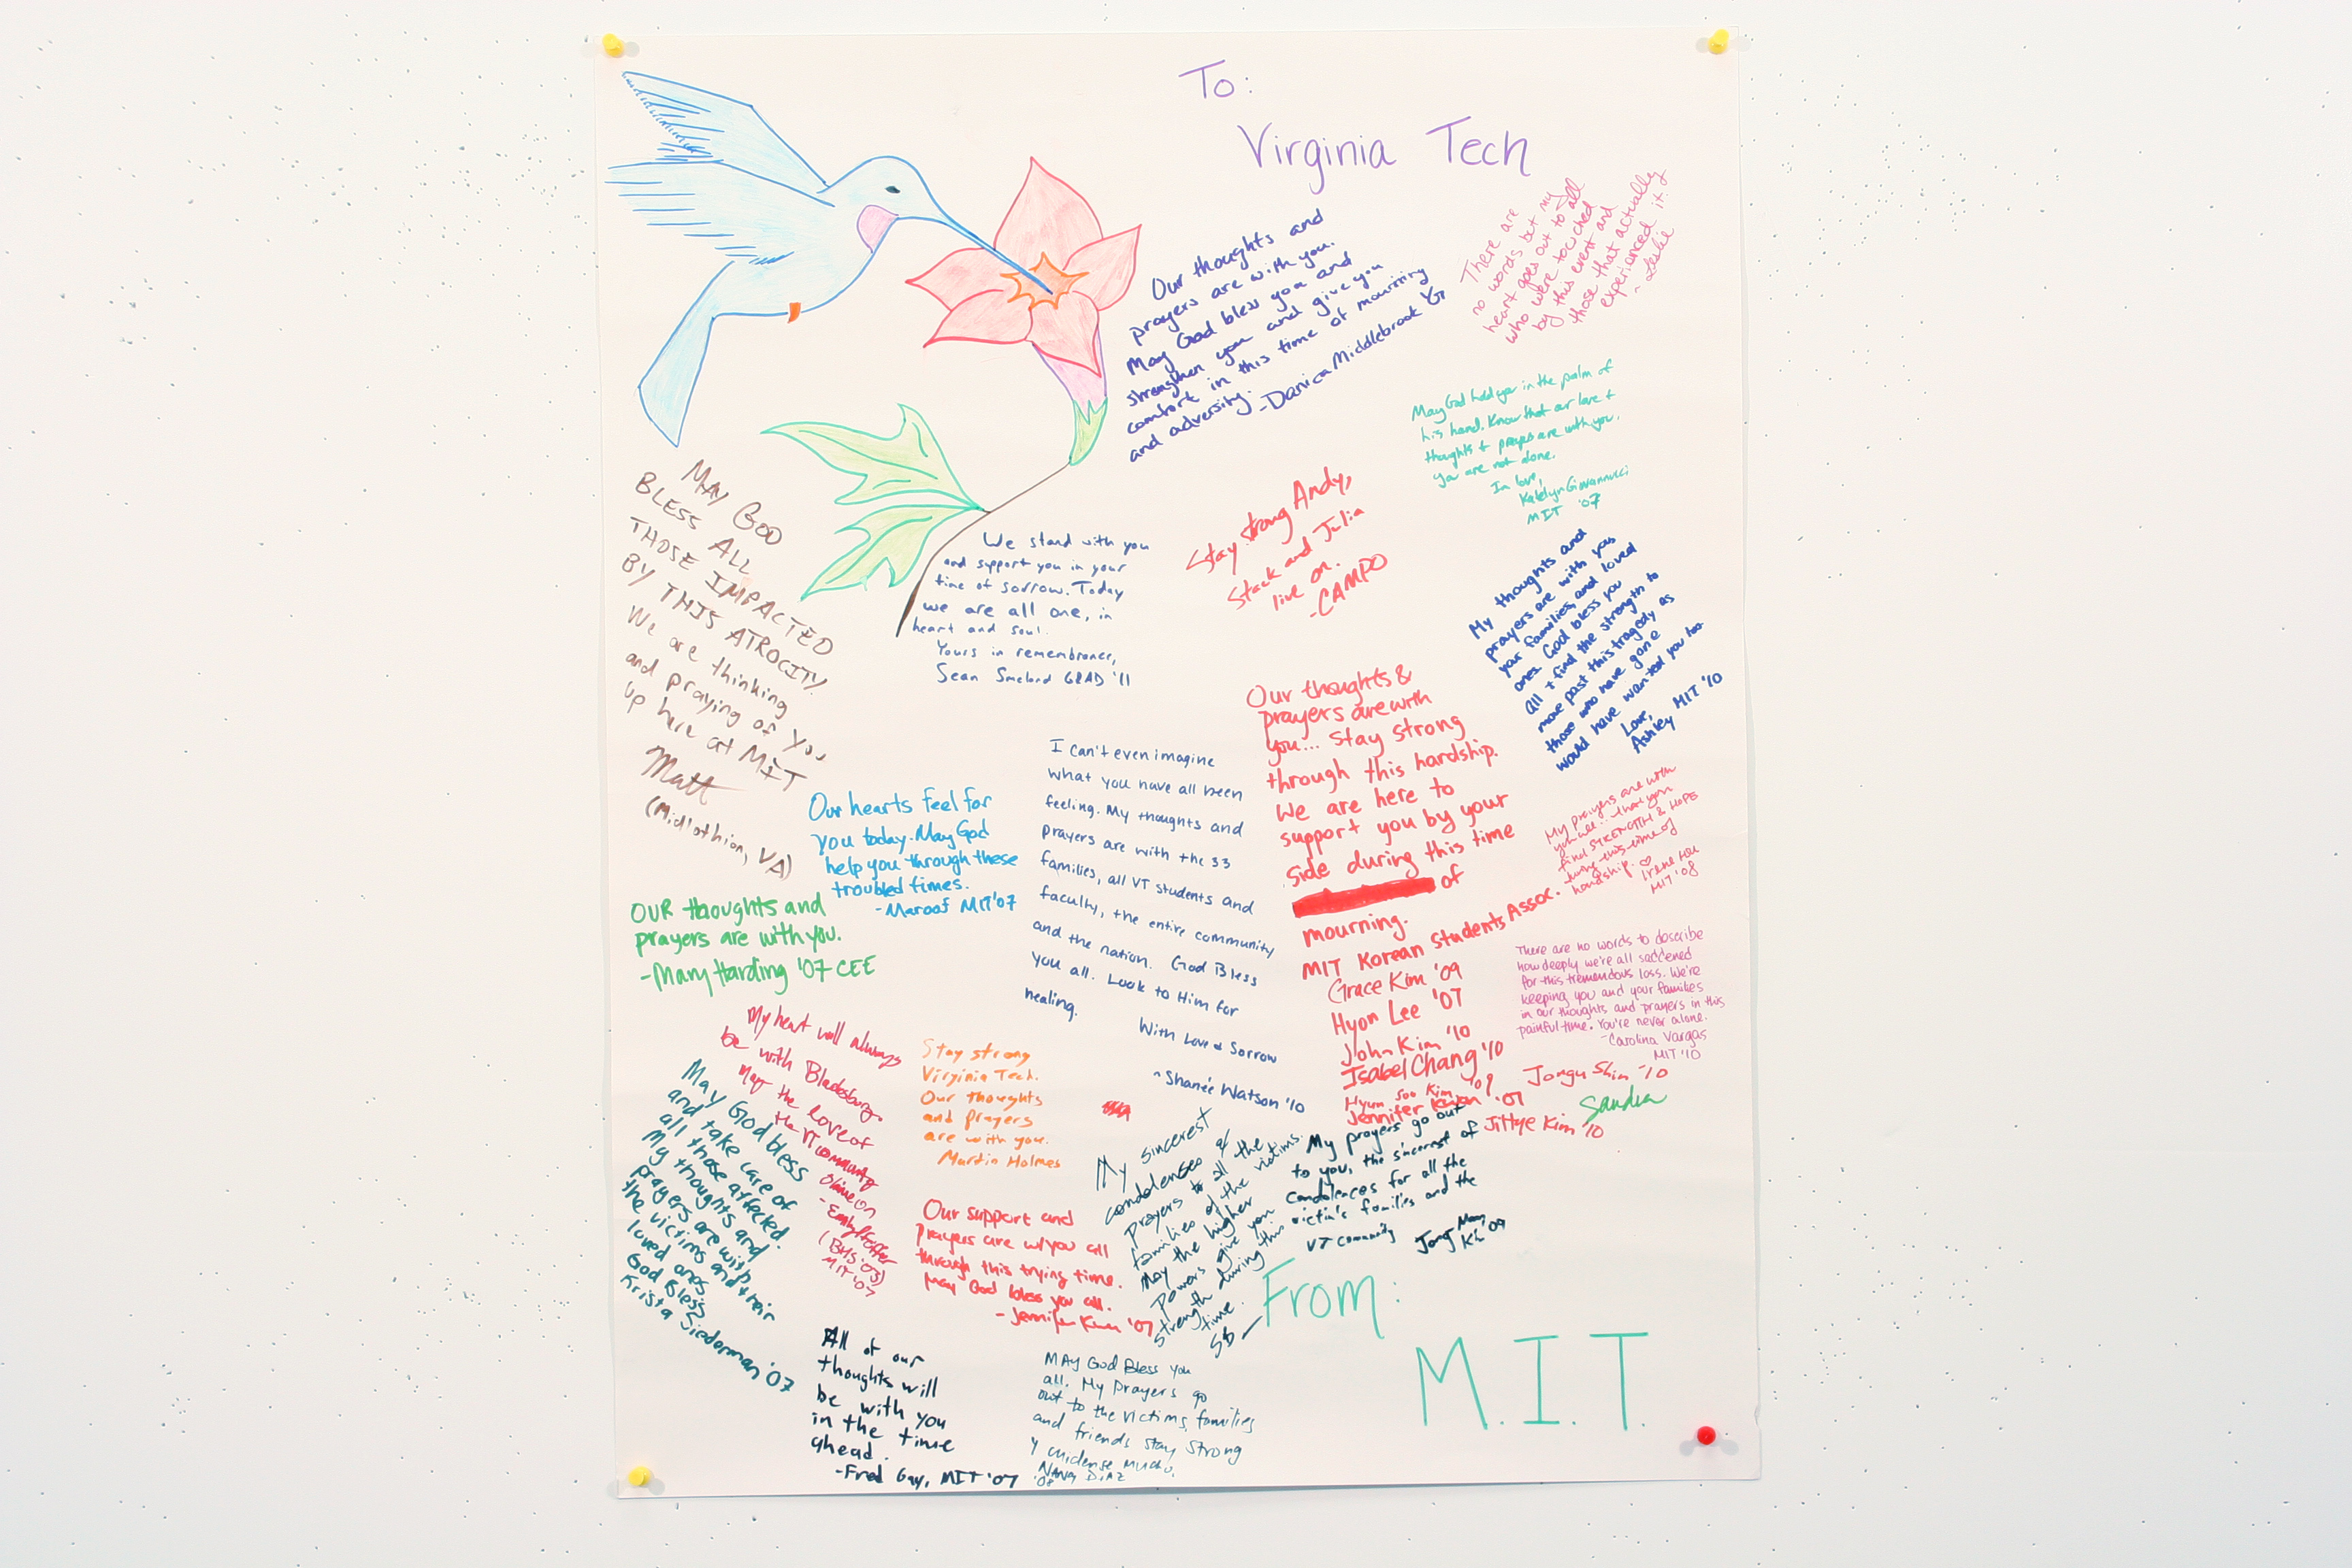 To:
Virginia Tech
Our thoughts and
prayers are with you.
May God bless you and
strengthen you and give you
comfort in this time of mourning
and adversity.
-Danica Middlebrook
There are
no words but my
heart goes out to all
who were touched
by this event and
those that actually
experienced it.
- Leslie
May God hold you in the palm of
his hand. Know that our love +
thoughts + prayers are with you.
you are not alone.
In love,
Katelyn Giovannucci
MIT '07
Stay strong Andy,
Stack and Julia
live on.
-CAMPO
MAY GOD
BLESS ALL
THOSE IMPACTED
BY THIS ATROCITY
We are thinking
and praying of you
up here at MIT
Matt
(Midlothian, VA)
We stand with you
and support you in your
time of sorrow. Today
we are all one, in
heart and soul.
Yours in remembrance,
Sean GRAD '11
My thoughts and
prayers are with you
your families, and loved
ones. God bless you
all + find the strength to
move past this tragedy as
those who have gone
would have wanted you too.
Love,
Ashley MIT '10
Our thoughts &
prayers are with
you... Stay strong
through this hardship.
We are here to
support you by your
side during this time
of
mourning.
MIT Korean Students Assoc.
Grace Kim '09
Hyon Lee '07
John Kim '10
Isabel Chang '10
Hyun Soo Kim '09
Jennifer Kwon '07
Jongu Shin '10
Jihye Kim '10
Sandra
My prayers are with
you all. I hope you
find STRENGTH & HOPE
during this time of
hardship. ♡
Irene
MIT '08
I can't even imagine
what you have all been
feeling. My thoughts and
prayers are with the 33
families, all VT students and
faculty, the entire community
and the nation. God Bless
you all. Look to Him for
healing.
With Love & Sorrow
~Shaneé Watson '10
Our hearts feel for
you today. May God
help you through these
troubled times.
-Maroof MIT '07
OUR thoughts and
prayers are with you.
-Mary Harding '07 CEE
There are no words to describe
how deeply we're all saddened
for this tremendous loss. We're
keeping you and your families
in our thoughts and prayers in this
painful time. You're never alone.
-Carolina Vargas
MIT '10
My heart will always
be with Blacksburg.
May the love of
the VT community
shine on
-Emily Pfeiffer
(BHS '03)
MIT '07
Stay strong
Virginia Tech.
Our thoughts
and prayers
are with you.
Martin Holmes
May God bless
and take care of
all those affected.
My thoughts and
prayers are with
the victims and their
loved ones.
God Bless
Krista Siederman '07
Our support and
Prayers are w/you all
through this trying time.
May God bless you all.
- Jennifer Kwon '07
My sincerest
condolences &
prayers to all the
families of the victims.
May the higher
powers give you
strength during this
time.
SB
My prayers go out
to you, the sincerest of
condolences for all the
victim's families and the
VT community
'09
All of our
thoughts will
be with you
in the time
ahead.
-Fred Gay, MIT '07
MAY God Bless you
all. My prayers go
out to the victims, families
and friends stay strong
y cuidense mucho.
NANCY DIAZ
'08
From:
M.I.T.